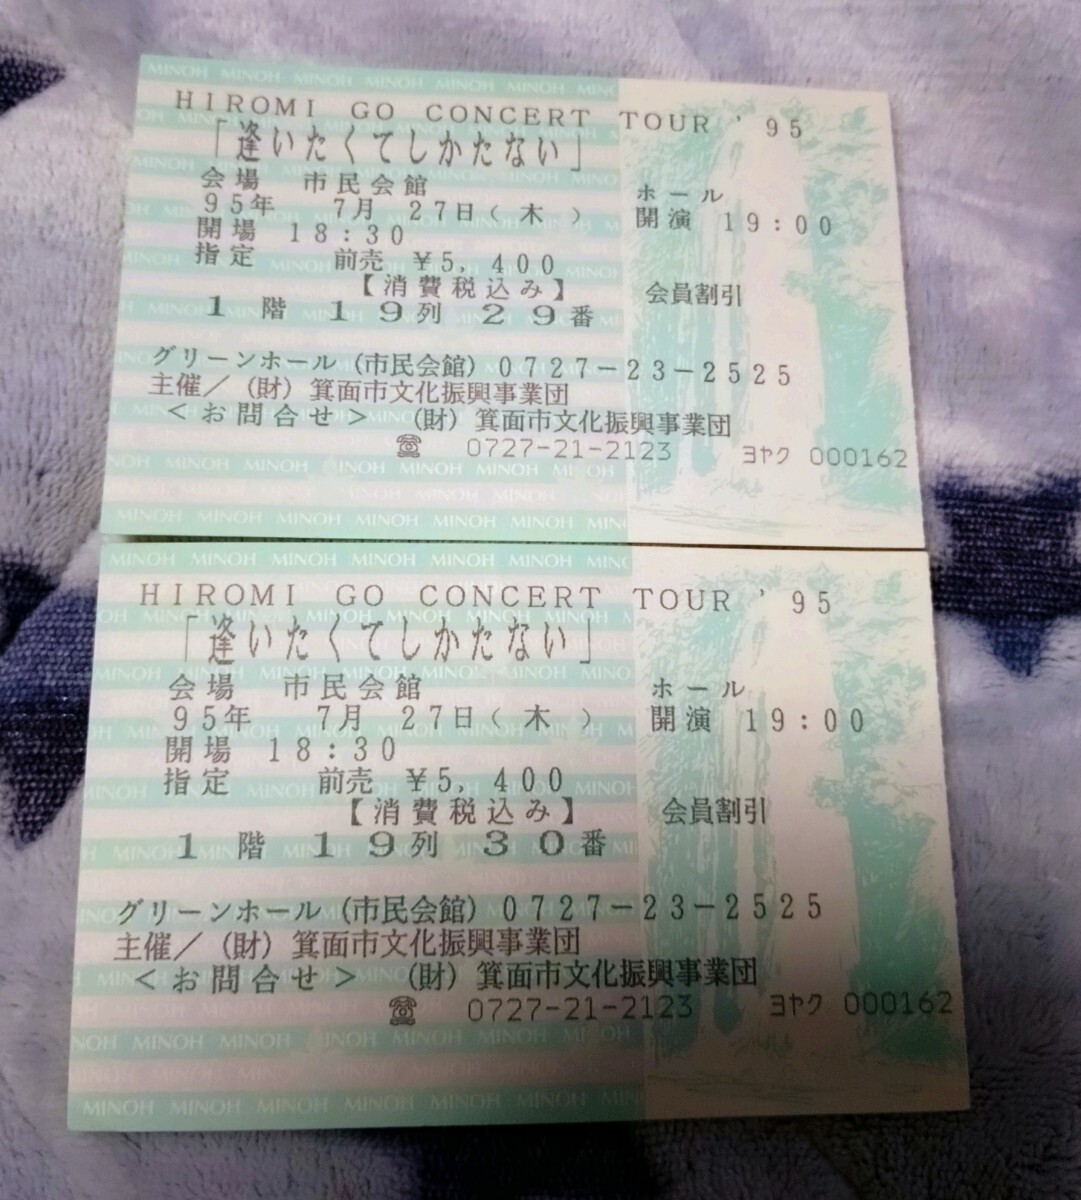 HIROMI GO CONCERT TOUR '95
「逢いたくてしかたない」
会場 市民会館 ホール
95年 7月 27日(木) 開演 19:00
開場 18:30
指定 前売 ¥5,400
【消費税込み】 会員割引
1階 19列 29番
グリーンホール(市民会館)0727-23-2525
主催/(財)箕面市文化振興事業団
<お問合せ> (財)箕面市文化振興事業団
☎ 0727-21-2123 ヨヤク 000162
HIROMI GO CONCERT TOUR '95
「逢いたくてしかたない」
会場 市民会館 ホール
95年 7月 27日(木) 開演 19:00
開場 18:30
指定 前売 ¥5,400
【消費税込み】 会員割引
1階 19列 30番
グリーンホール(市民会館)0727-23-2525
主催/(財)箕面市文化振興事業団
<お問合せ> (財)箕面市文化振興事業団
☎ 0727-21-2123 ヨヤク 000162
MINOH MINOH MINOH MINOH MINOH MINOH